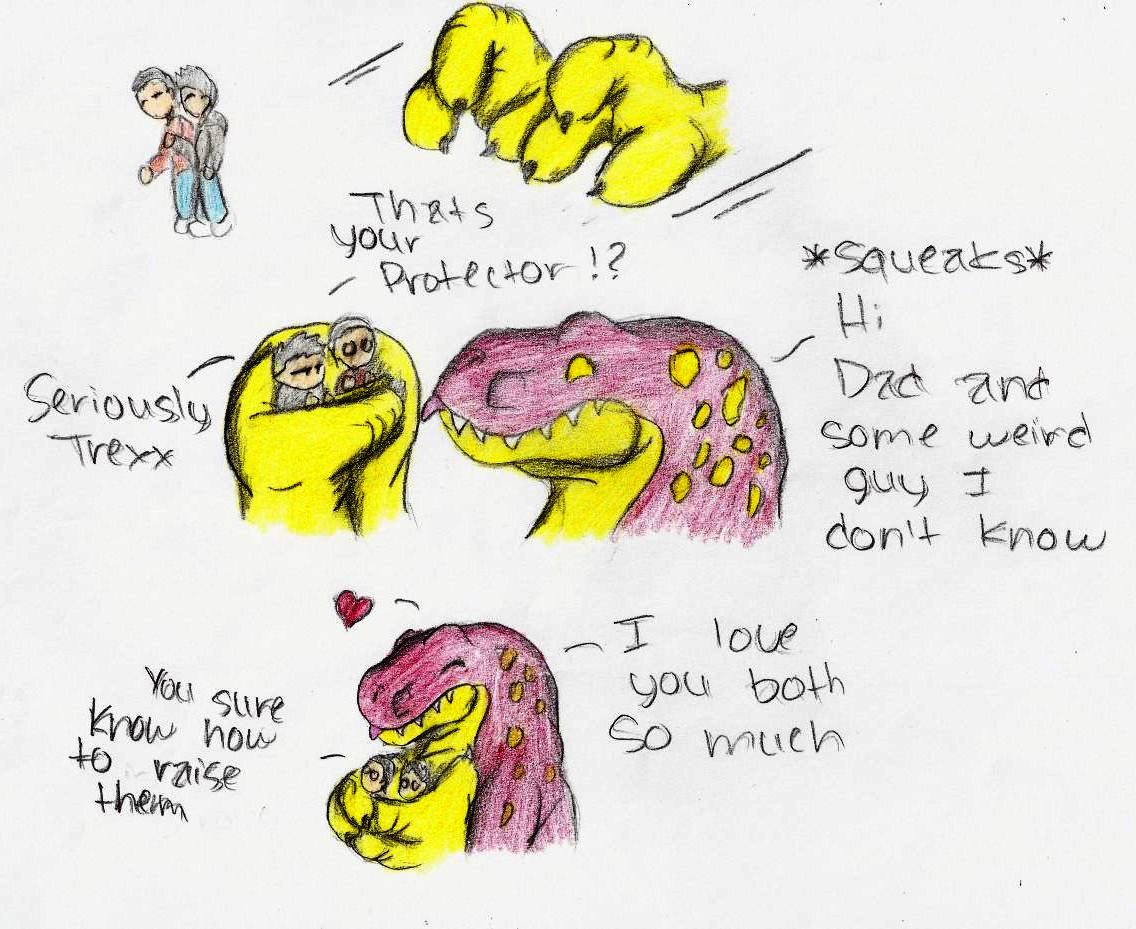 Thats
your
Protector!?
*Squeaks*
Hi
Dad and
some weird
guy I
don't know
Seriously
Trexx
I love
you both
so much
You sure
know how
to raise
them